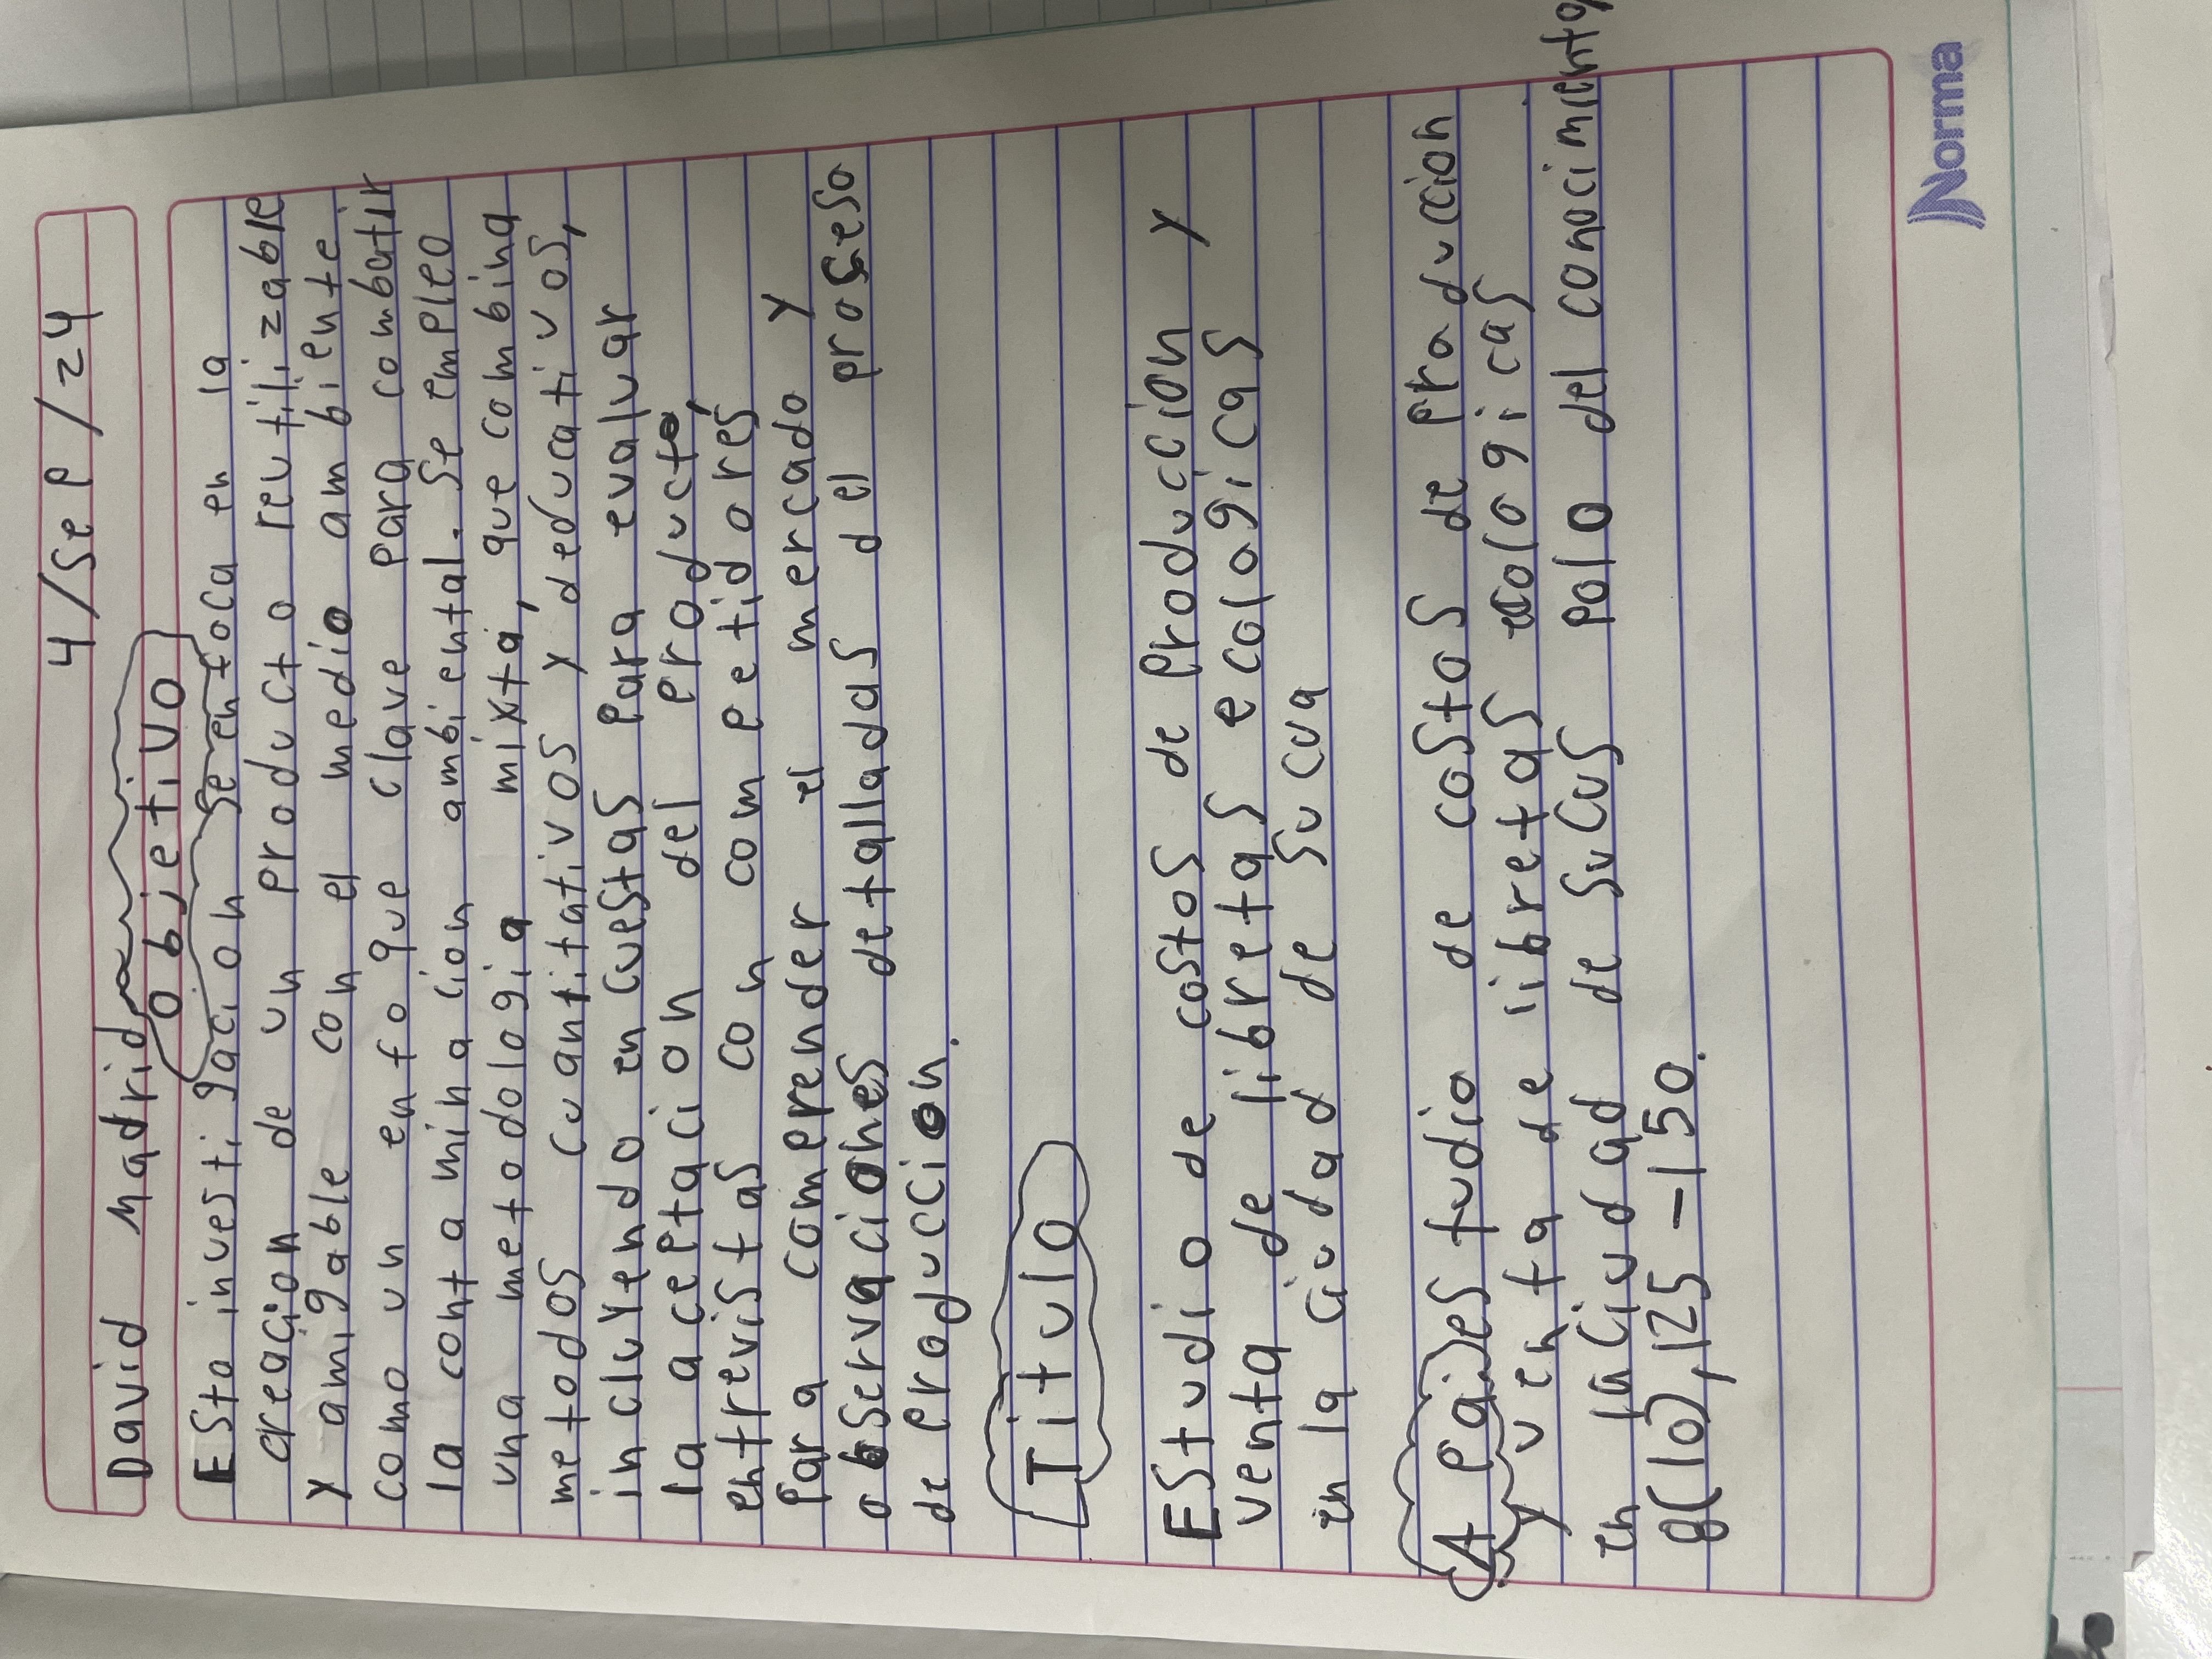 4/Sep/24
David Madrid
Objetivo
Esta investigacion se enfoca en la
creacion de un producto reutilizable
y amigable con el medio ambiente
como un enfoque clave para combatir
la contaminacion ambiental. Se empleo
una metodologia mixta, que combina
metodos cuantitativos y deducativos,
incluyendo encuestas para evaluar
la aceptacion del producto,
entrevistas con competidores
para comprender el mercado y
observaciones detalladas del proseso
de produccion.
Titulo
Estudio de costos de produccion y
venta de libretas ecologicas
en la ciudad de sucua
A pai) es tudio de costos de produccion
y venta de libretas ecologicas
en la ciudad de sucus polo del conocimiento
8(10), 125-150.
Norma